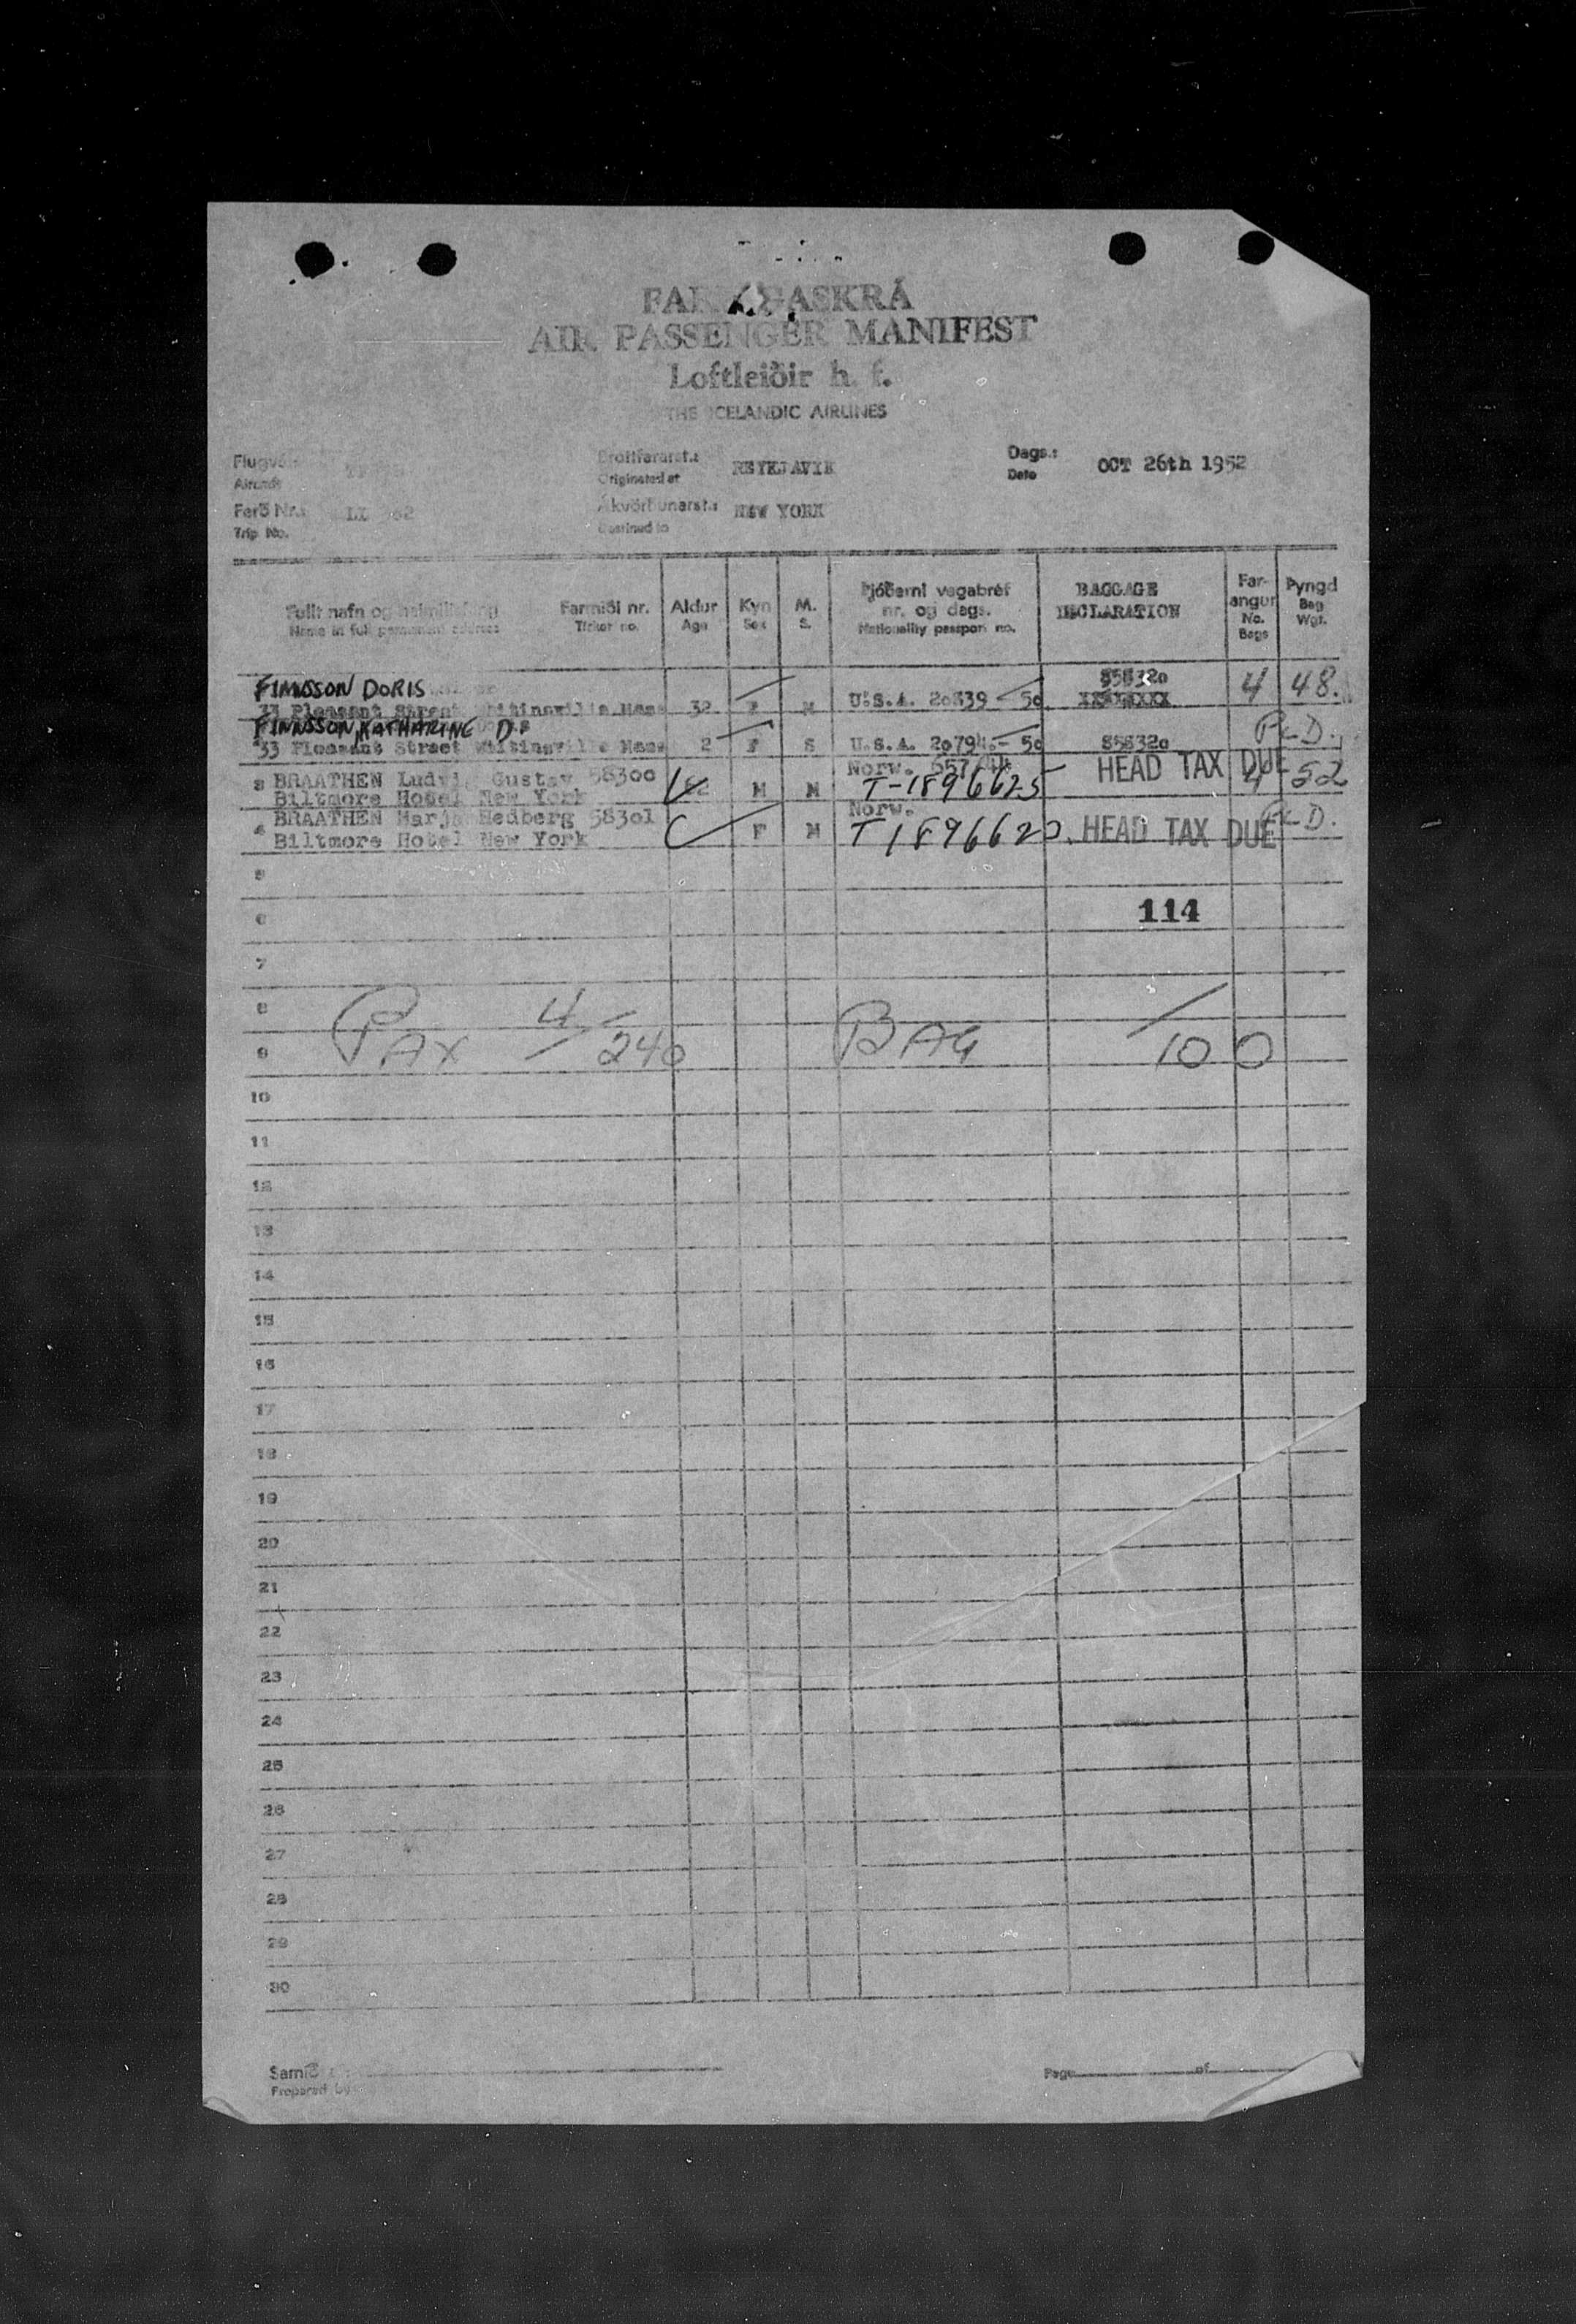 AIR PASSENGER MANIFEST
Loftleiðir h. f.
THE ICELANDIC AIRLINES
Originated at REYKJAVIK
Dags.:
Date OCT 26th 1952
Ferð Nr.:
Trip No.
Ákvörðunarst.: NEW YORK
Destined to
Farmiði nr.
Ticket no.
Aldur
Age
Kyn
Sex
M.
S.
Þjóðerni vegabréf
nr. og dags.
Nationality passport no.
BAGGAGE
DECLARATION
Far-
angur
No.
Bags
Þyngd
Bag
Wgt.
Name in full permanent address
FINNSSON DORIS 858320 4 48.
33 Pleasant Street Whitinsville Mass 32 F M U.S.A. 20839 - 50 XXXXXXXX
FINNSSON, KATHARINE D.
33 Pleasant Street Whitinsville Mass 2 F S U.S.A. 50 858320
3 BRAATHEN Ludvig Gustav 58300 Norw. HEAD TAX DUE 4 52
Biltmore Hotel New York M M T-1896625
4 BRAATHEN Hedberg 58301 Norw.
Biltmore Hotel New York F M T1896620. HEAD TAX DUE
5
6 114
7
8
PAX 4/240 BAG /100
9
10
11
12
13
14
15
16
17
18
19
20
21
22
23
24
25
26
27
28
29
30
Prepared by
Page of